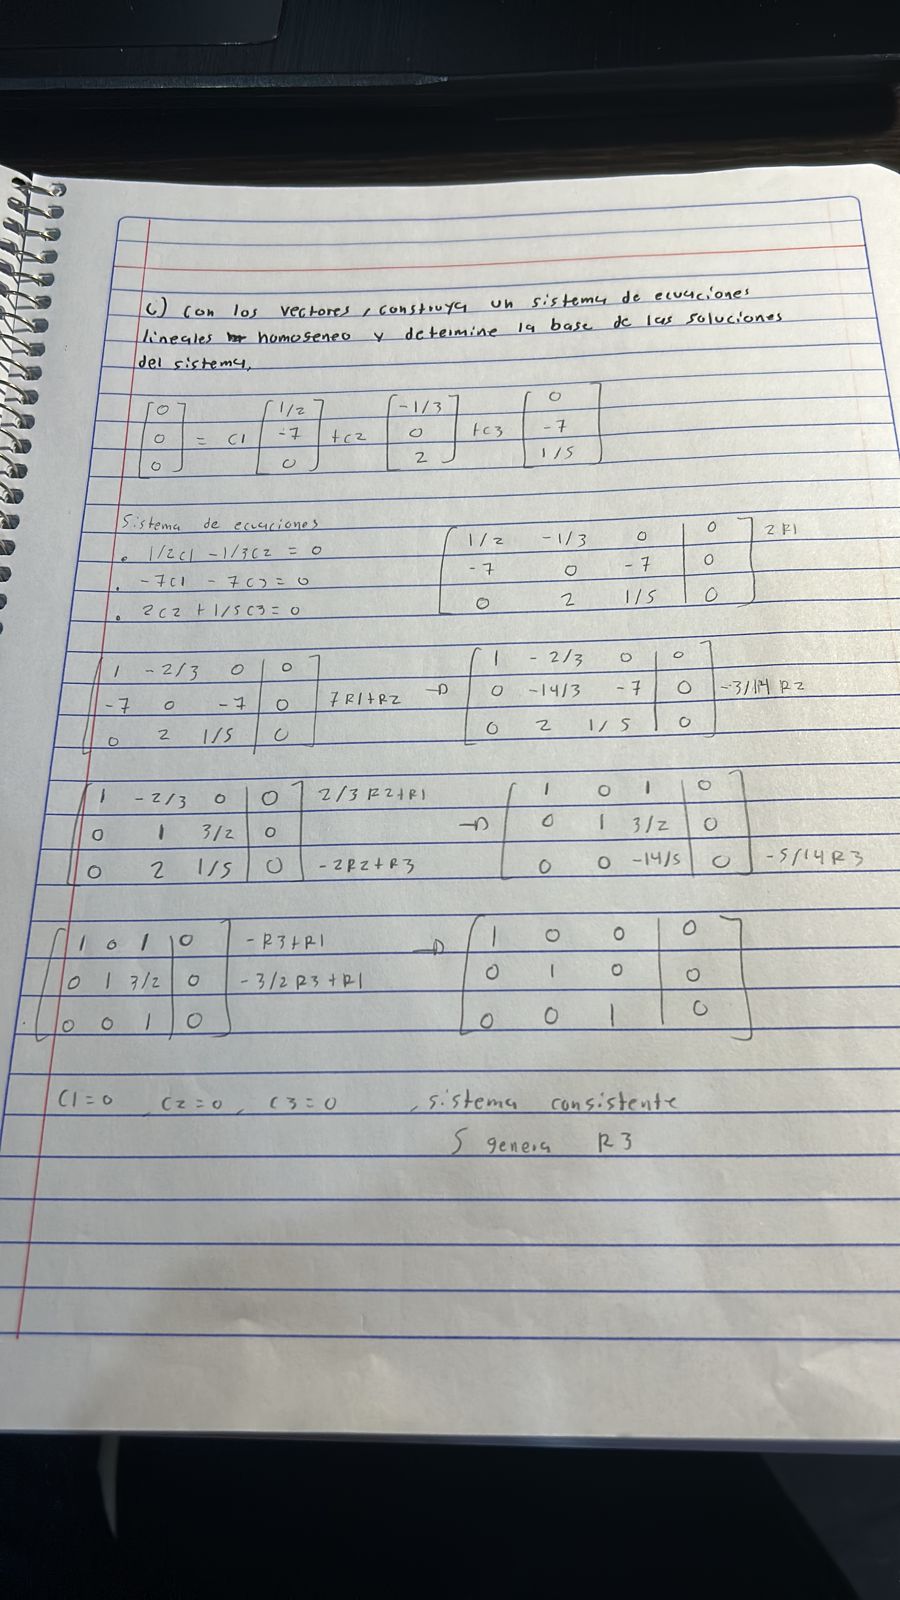 c) con los vectores, construya un sistema de ecuaciones
lineales homogeneo y determine la base de las soluciones
del sistema.
[0 0 0] = C1 [1/2 -7 0] + C2 [-1/3 0 2] + C3 [0 -7 1/5]
Sistema de ecuaciones
• 1/2C1 - 1/3C2 = 0
• -7C1 - 7C3 = 0
• 2C2 + 1/5C3 = 0
1/2 -1/3 0 | 0 2R1
-7 0 -7 | 0
0 2 1/5 | 0
1 -2/3 0 | 0
-7 0 -7 | 0 7R1+R2 →
0 2 1/5 | 0
1 -2/3 0 | 0
0 -14/3 -7 | 0 -3/14 R2
0 2 1/5 | 0
1 -2/3 0 | 0 2/3 R2+R1
0 1 3/2 | 0 →
0 2 1/5 | 0 -2R2+R3
1 0 1 | 0
0 1 3/2 | 0
0 0 -14/5 | 0 -5/14R3
1 0 1 | 0 -R3+R1 →
0 1 3/2 | 0 -3/2R3+R1
0 0 1 | 0
1 0 0 | 0
0 1 0 | 0
0 0 1 | 0
C1=0, C2=0, C3=0, sistema consistente
S genera R3